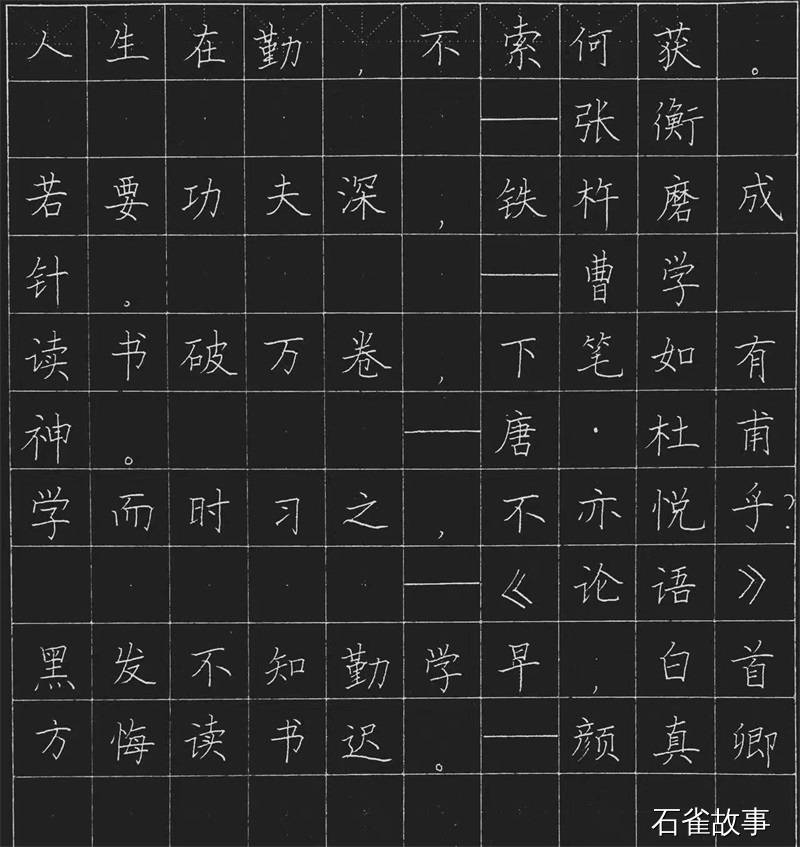 人生在勤，不索何获。
——张衡
若要功夫深，铁杵磨成
针。——曹学
读书破万卷，下笔如有
神。——唐·杜甫
学而时习之，不亦悦乎？
——《论语》
黑发不知勤学早，白首
方悔读书迟。——颜真卿
石雀故事